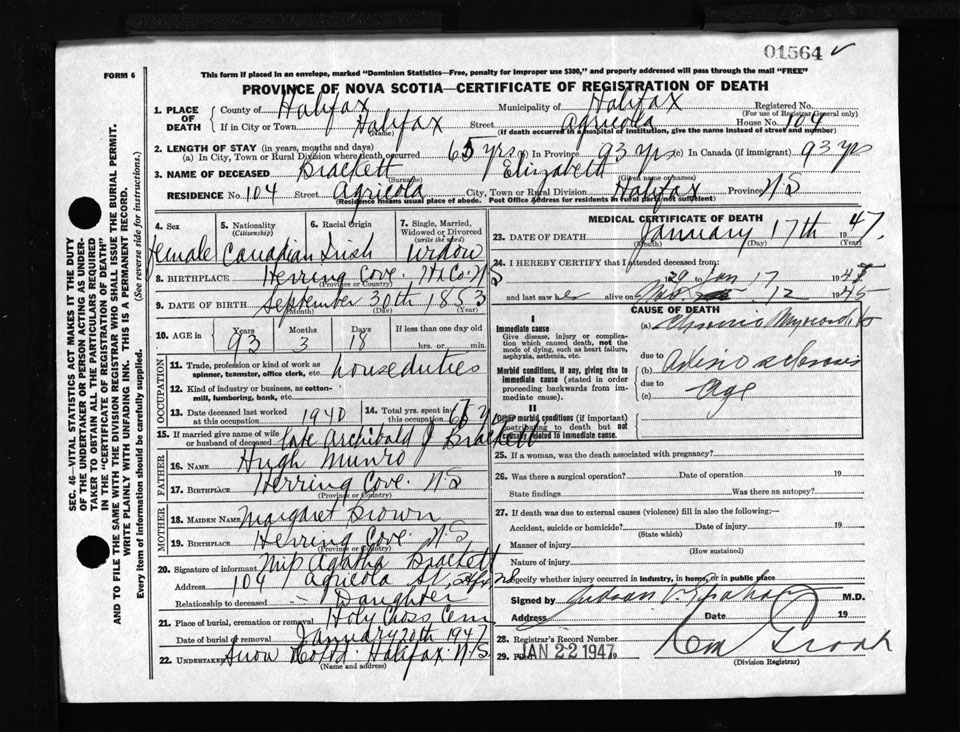 01564
FORM 6
This form if placed in an envelope, marked "Dominion Statistics—Free, penalty for improper use $300," and properly addressed will pass through the mail "FREE"
PROVINCE OF NOVA SCOTIA—CERTIFICATE OF REGISTRATION OF DEATH
SEC. 46—VITAL STATISTICS ACT MAKES IT THE DUTY
OF THE UNDERTAKER OR PERSON ACTING AS UNDER-
TAKER TO OBTAIN ALL THE PARTICULARS REQUIRED
IN THE "CERTIFICATE OF REGISTRATION OF DEATH"
AND TO FILE THE SAME WITH THE DIVISION REGISTRAR WHO SHALL ISSUE THE BURIAL PERMIT.
WRITE PLAINLY WITH UNFADING INK. THIS IS A PERMANENT RECORD.
Every item of information should be carefully supplied. (See reverse side for instructions.)
1. PLACE OF DEATH County of Halifax Municipality of Halifax Registered No.
(For use of Registrar General only)
If in City or Town Halifax Street Agricola House No. 104
(Name) (If death occurred in a hospital or institution, give the name instead of street and number)
2. LENGTH OF STAY (in years, months and days)
(a) In City, Town or Rural Division where death occurred 65 yrs (b) In Province 93 yrs (c) In Canada (if immigrant) 93 yrs
3. NAME OF DECEASED Brackett Elizabeth
(Surname) (Given name or names)
RESIDENCE No. 104 Street Agricola City, Town or Rural Division Halifax Province N S
(Residence means usual place of abode. Post Office Address for residents in rural parts not sufficient)
4. Sex 5. Nationality (Citizenship) 6. Racial Origin 7. Single, Married, Widowed or Divorced (write the word)
Female Canadian Irish Widow
8. BIRTHPLACE Herring Cove Hx Co. N S
(Province or Country)
9. DATE OF BIRTH September 30th 1853
(Month) (Day) (Year)
10. AGE in Years Months Days If less than one day old
93 3 18 hrs. or min.
OCCUPATION
11. Trade, profession or kind of work as spinner, teamster, office clerk, etc. housedutties
12. Kind of industry or business, as cotton-mill, lumbering, bank, etc.
13. Date deceased last worked at this occupation 1940 14. Total yrs. spent in
15. If married give name of wife or husband of deceased Late Archibald J Brackett
FATHER
16. NAME Hugh Munro
17. BIRTHPLACE Herring Cove N S
(Province or Country)
MOTHER
18. MAIDEN NAME Margaret Brown
19. BIRTHPLACE Herring Cove N S
(Province or Country)
20. Signature of informant Miss Agatha Brackett
Address 104 Agricola St, Hfx N S
Relationship to deceased Daughter
21. Place of burial, cremation or removal Holy Cross Cem
Date of burial or removal January 20th 1947
22. UNDERTAKER Snow Halifax N S
(Name and address)
MEDICAL CERTIFICATE OF DEATH
23. DATE OF DEATH January 17th 1947
(Month) (Day) (Year)
24. I HEREBY CERTIFY that I attended deceased from
to Jan 17 194
and last saw her alive on Nov. 12 1945
CAUSE OF DEATH
I
Immediate cause
Give disease, injury or complication which caused death, not the mode of dying, such as heart failure, asphyxia, asthenia, etc.
(a) Chronic Myocarditis
due to
Morbid conditions, if any, giving rise to immediate cause (stated in order proceeding backwards from immediate cause).
(b) Arterio sclerosis
due to
(c) Age
II
Other morbid conditions (if important) contributing to death but not causally related to immediate cause.
25. If a woman, was the death associated with pregnancy?
26. Was there a surgical operation? Date of operation 19
State findings Was there an autopsy?
27. If death was due to external causes (violence) fill in also the following:—
Accident, suicide or homicide? Date of injury 19
(State which)
Manner of injury
(How sustained)
Nature of injury
Specify whether injury occurred in industry, in home, or in public place
Signed by M.D.
Address Date 19
28. Registrar's Record Number
29. JAN 22 1947 19
(Division Registrar)